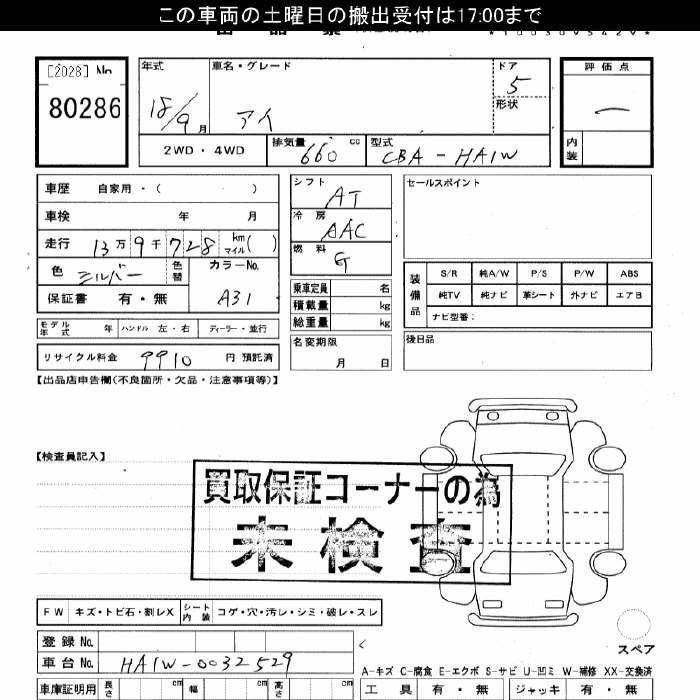 この車両の土曜日の搬出受付は17:00まで
[2028] No
80286
年式
18/9 月
車名・グレード
アイ
ドア
5
形状
評価点
一
内装
2WD・4WD
排気量 660 cc
型式 CBA-HA1W
車歴 自家用・( )
車検 年 月
走行 13万9千728 km マイル( )
色 シルバー 色替
カラーNo.
A31
保証書 有・無
モデル年式 年 ハンドル 左・右 ディーラー・並行
リサイクル料金 9910 円 預託済
シフト AT
冷房 AAC
燃料 G
乗車定員 名
積載量 kg
総重量 kg
名変期限
月 日
セールスポイント
装備品
S/R 純A/W P/S P/W ABS
純TV 純ナビ 革シート 外ナビ エアB
ナビ型番:
後日品
【出品店申告欄(不良箇所・欠品・注意事項等)】
【検査員記入】
買取保証コーナーの為
未検査
FW キズ・トビ石・割レX シート内装 コゲ・穴・汚レ・シミ・破レ・スレ
登録No.
車台No. HA1W-0032529
車庫証明用 長さ cm 幅 cm 高さ cm
スペア
A-キズ C-腐食 E-エクボ S-サビ U-凹ミ W-補修 XX-交換済
工具 有・無 ジャッキ 有・無